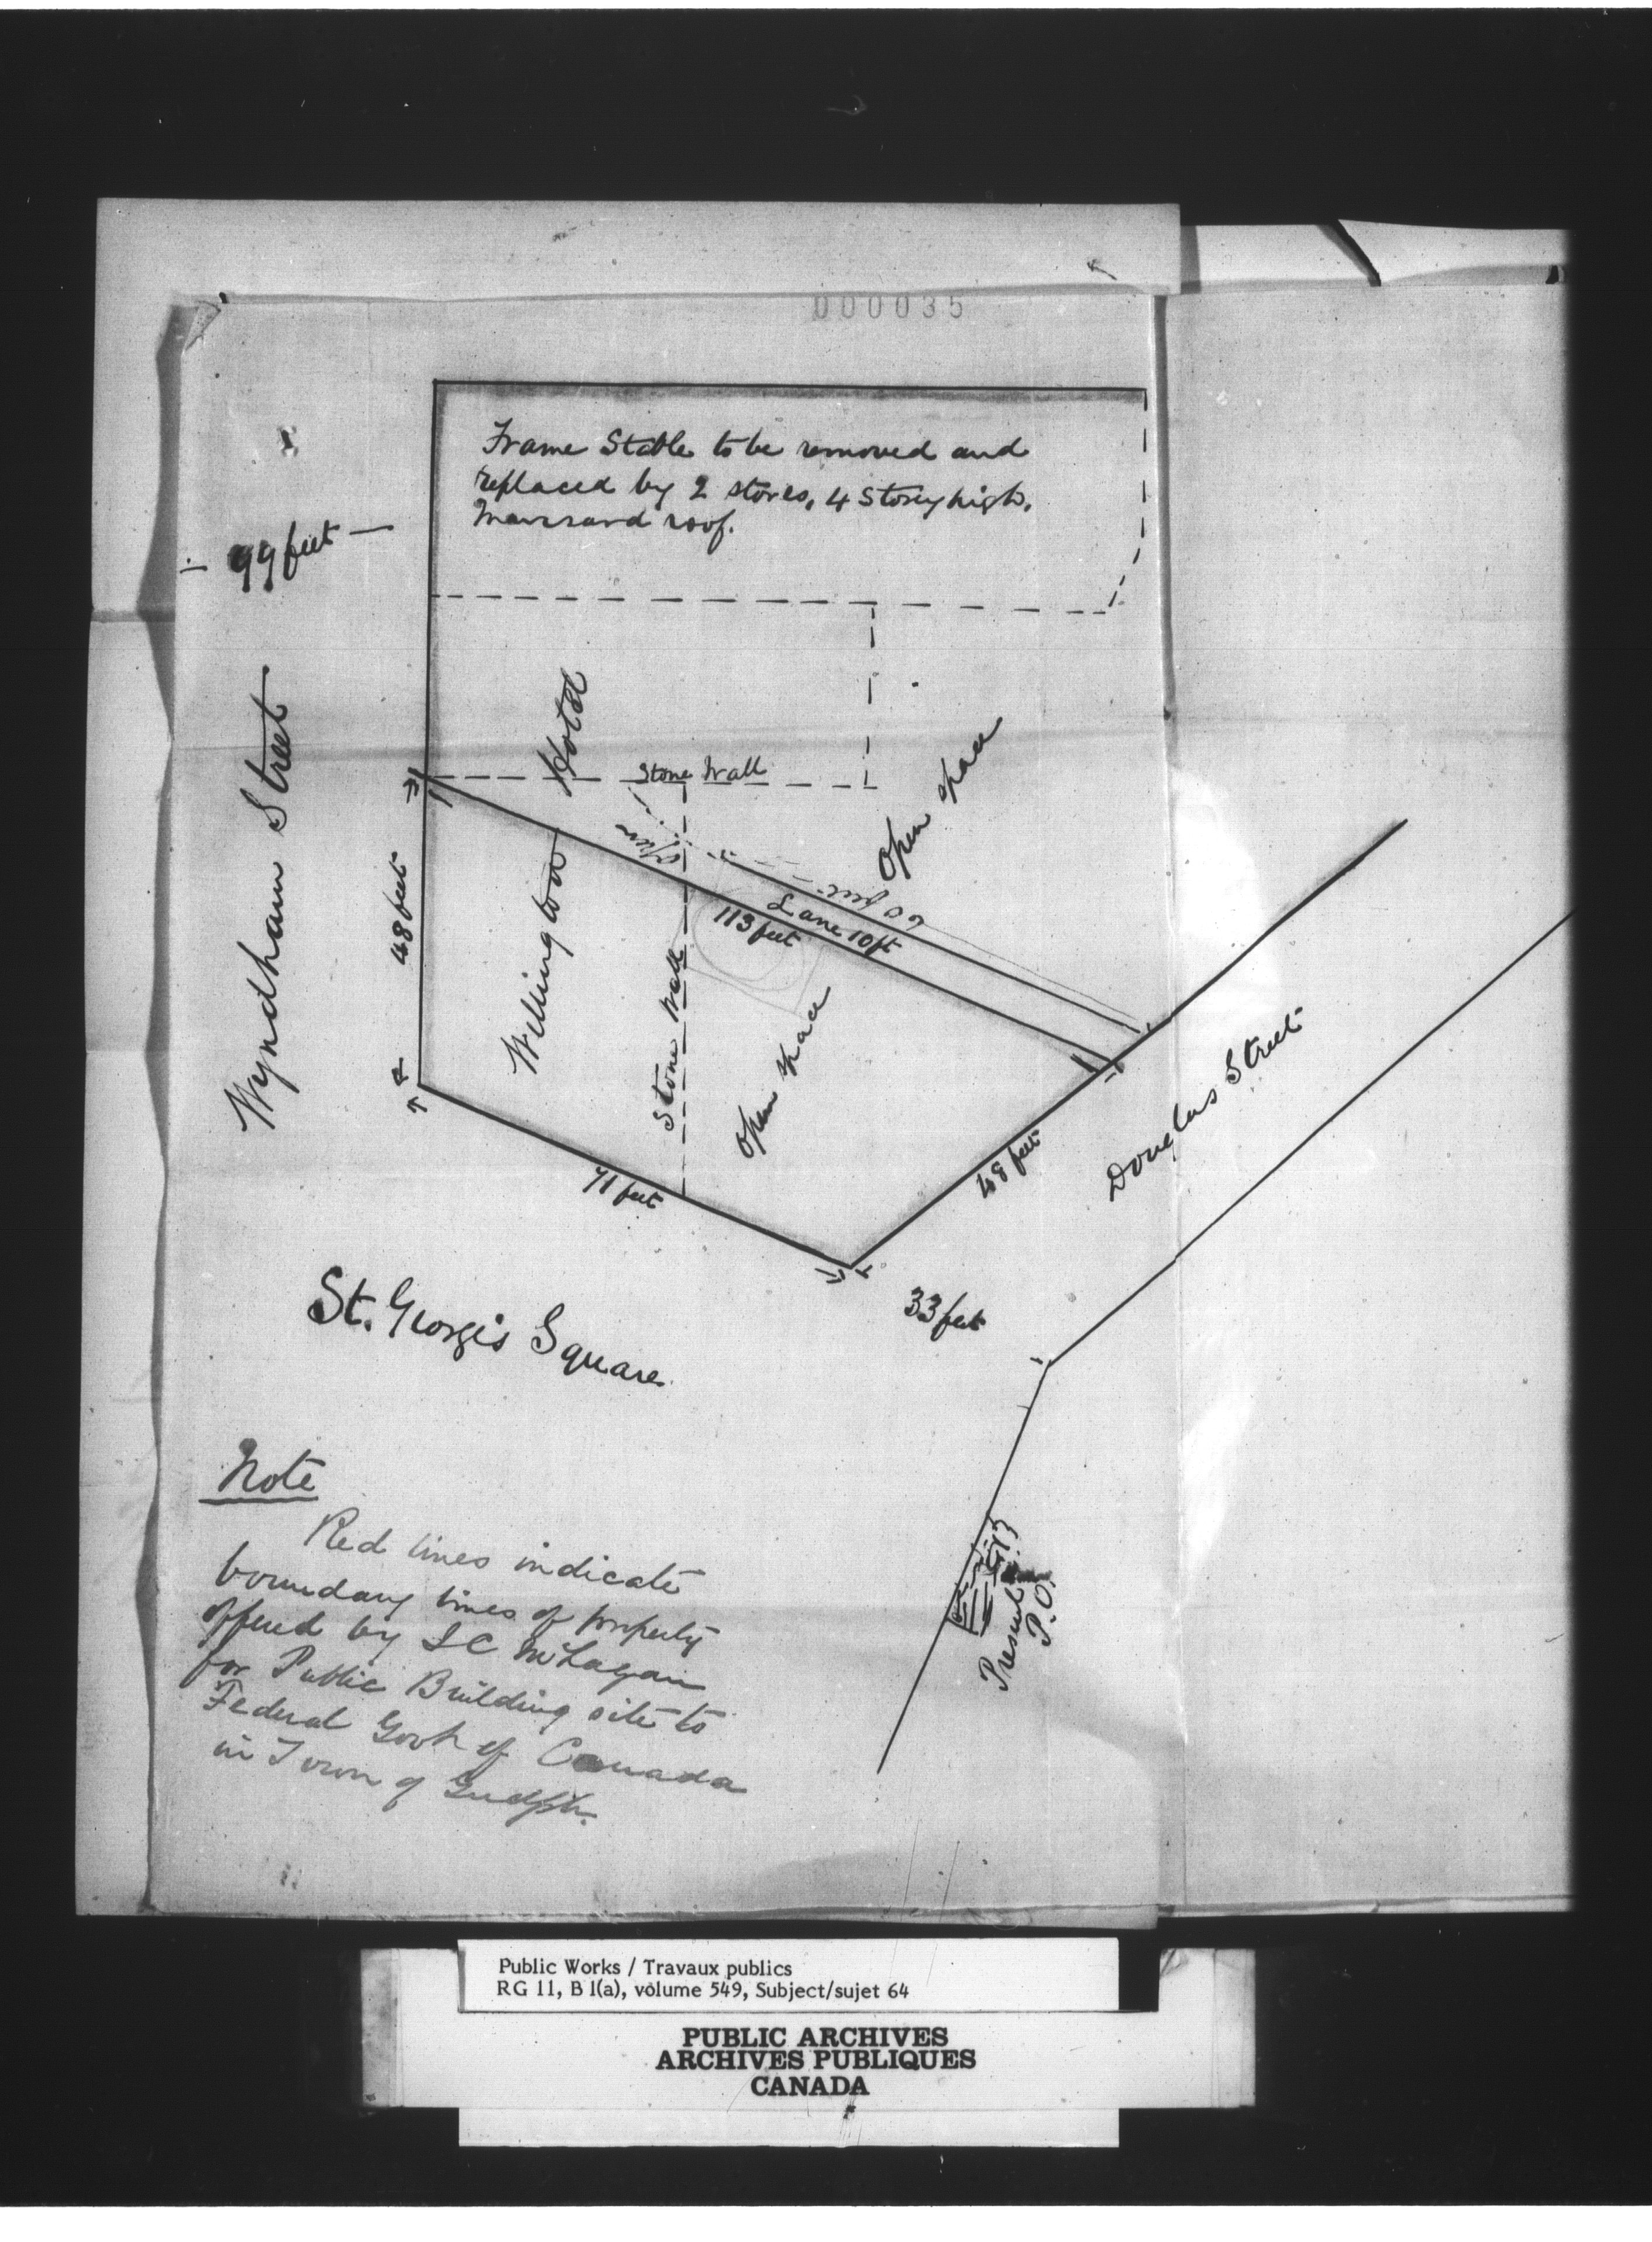 000035
Frame Stable to be removed and
replaced by 2 stores, 4 Storey high,
Mansard roof.
99 feet
Wyndham Street
Hotel
Stone Wall
Open space
48 feet
Wellington
Open
60 feet
Lane 10ft
113 feet
Stone Wall
Open space
71 feet
48 feet
Douglas Street
33 feet
St. George's Square
Present
P.O.
Note
Red lines indicate
boundary lines of property
offered by
for Public Building site to
Federal Govt of Canada
in Town of Guelph.
Public Works / Travaux publics
RG 11, B 1(a), volume 549, Subject/sujet 64
PUBLIC ARCHIVES
ARCHIVES PUBLIQUES
CANADA